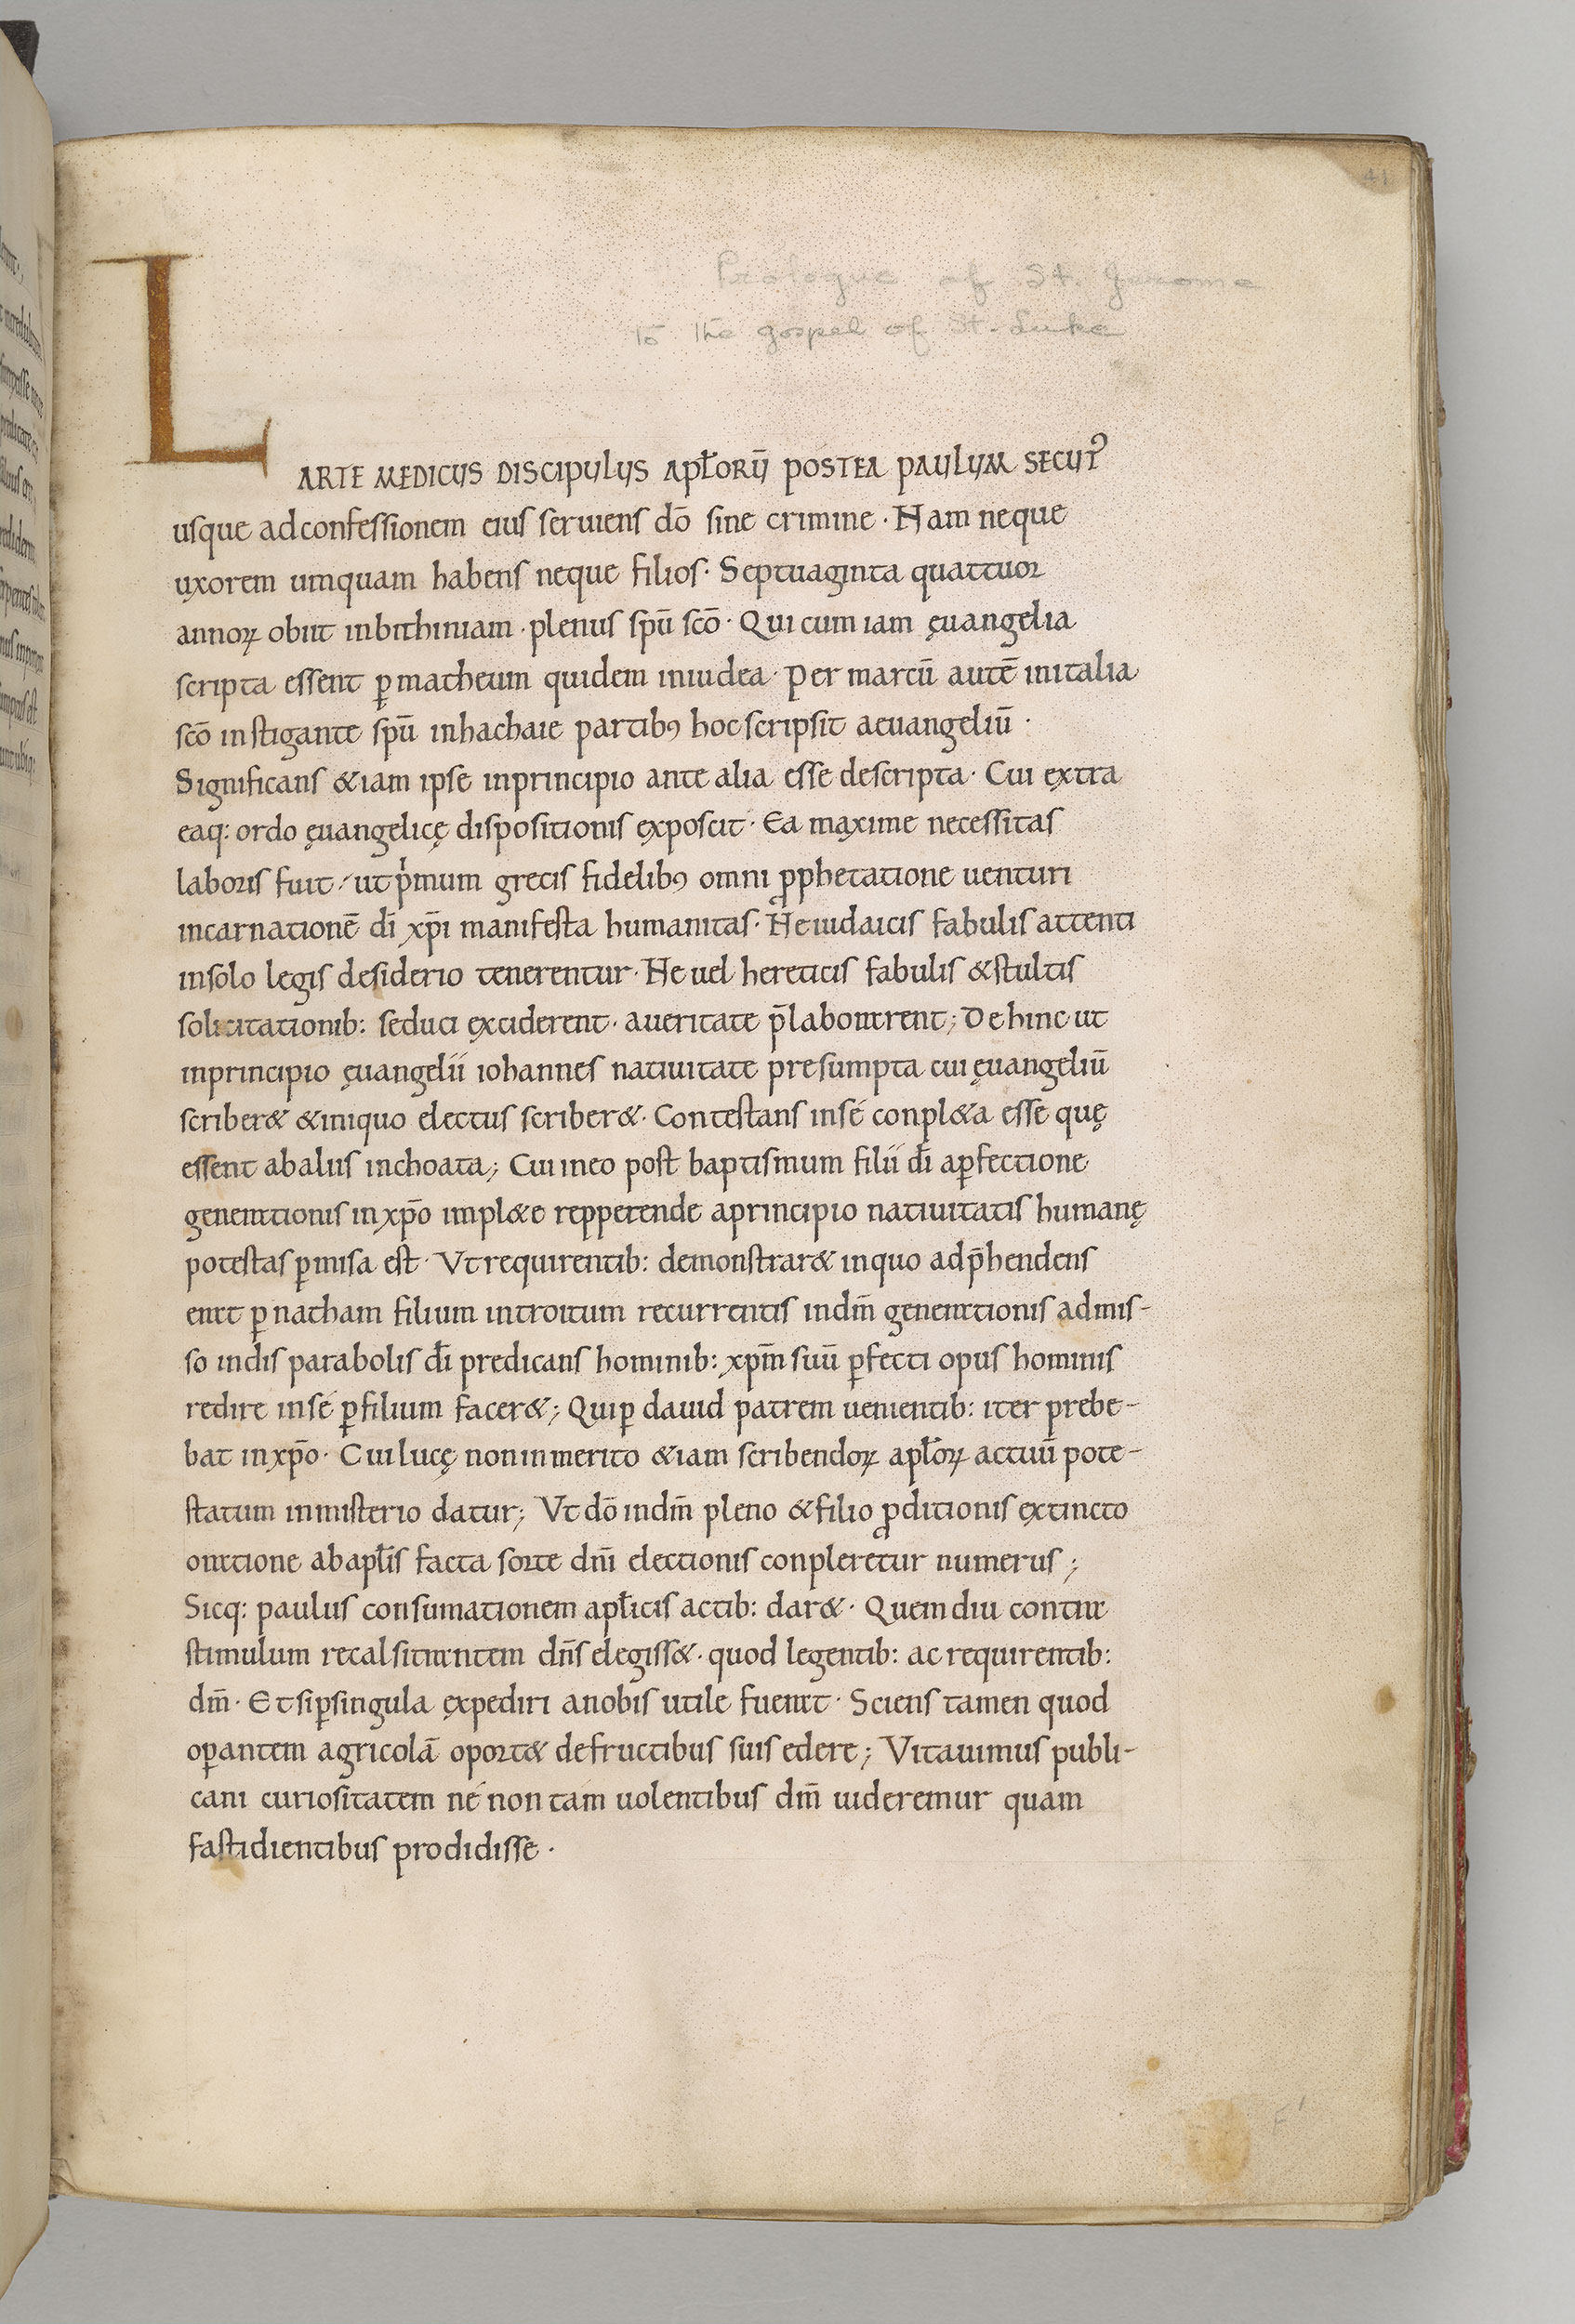 41
Prologue of St. Jerome
to the gospel of St. Luke
L
ARTE MEDICUS DISCIPULUS APŁORŪ POSTEA PAULUM SECUT᾿
usque adconfessionem eius seruiens dō sine crimine · Nam neque
uxorem umquam habens neque filios · Septuaginta quattuor
annoꝝ obiit inbithiniam · plenus spū scō · Qui cum iam ęuangelia
scripta essent ꝑ matheum quidem iniudea · Per marcū autē initalia
scō instigante spū inhachaie partibꝯ hoc scripsit aeuangeliū ·
Significans &iam ipse inprincipio ante alia esse descripta · Cui extra
eaq: ordo ęuangelicę dispositionis exposcit · Ea maxime necessitas
laboris fuit / ut pͥmum grecis fidelibꝯ omni ꝓphetatione uenturi
incarnationē dī xp̄i manifesta humanitas · Ne iudaicis fabulis attenti
insolo legis desiderio tenerentur · Ne uel hereticis fabulis &stultis
solicitationib: seduci exciderent · aueritate p̄laborarent; Dehinc ut
inprincipio ęuangelii iohannes natiuitate presumpta cui ęuangeliū
scriber& &iniquo electus scriber& · Contestans insé conpl&a esse quę
essent abalus inchoata; Cui ineo post baptismum filii dī aꝑfectione
generationis inxp̄o impl&e repperende aprincipio natiuitatis humanę
potestas ꝑmisa est · Ut requirentib: demonstrar& inquo adp̄hendens
erat ꝑ natham filium introitum recurrentis indm̄ generationis admis-
so indis parabolis dī predicans hominib: xpm̄ suū ꝑfecti opus hominis
redire insé ꝑfilium facer&; Quiꝑ dauid patrem uenientib: iter prebe-
bat inxp̄o · Cui lucę noninmerito &iam scribendoꝝ apłoꝝ actuū pote-
statum inmisterio datur; Ut dō indm̄ pleno &filio ꝓditionis extincto
oratione abapłis facta sorte dn̄i electionis conpleretur numerus;
Sicq: paulus consumationem apłicis actib: dar& · Quem diu contra
stimulum recalsitrantem dn̄s elegiss& · quod legentib: ac requirentib:
dm̄ · Et siꝑsingula expediri anobis utile fuerat · Sciens tamen quod
oꝑantem agricolā oport& defructibus suis edere; Vitauimus publi-
cani curiositatem né non tam uolentibus dm̄ uideremur quam
fastidientibus prodidisse ·